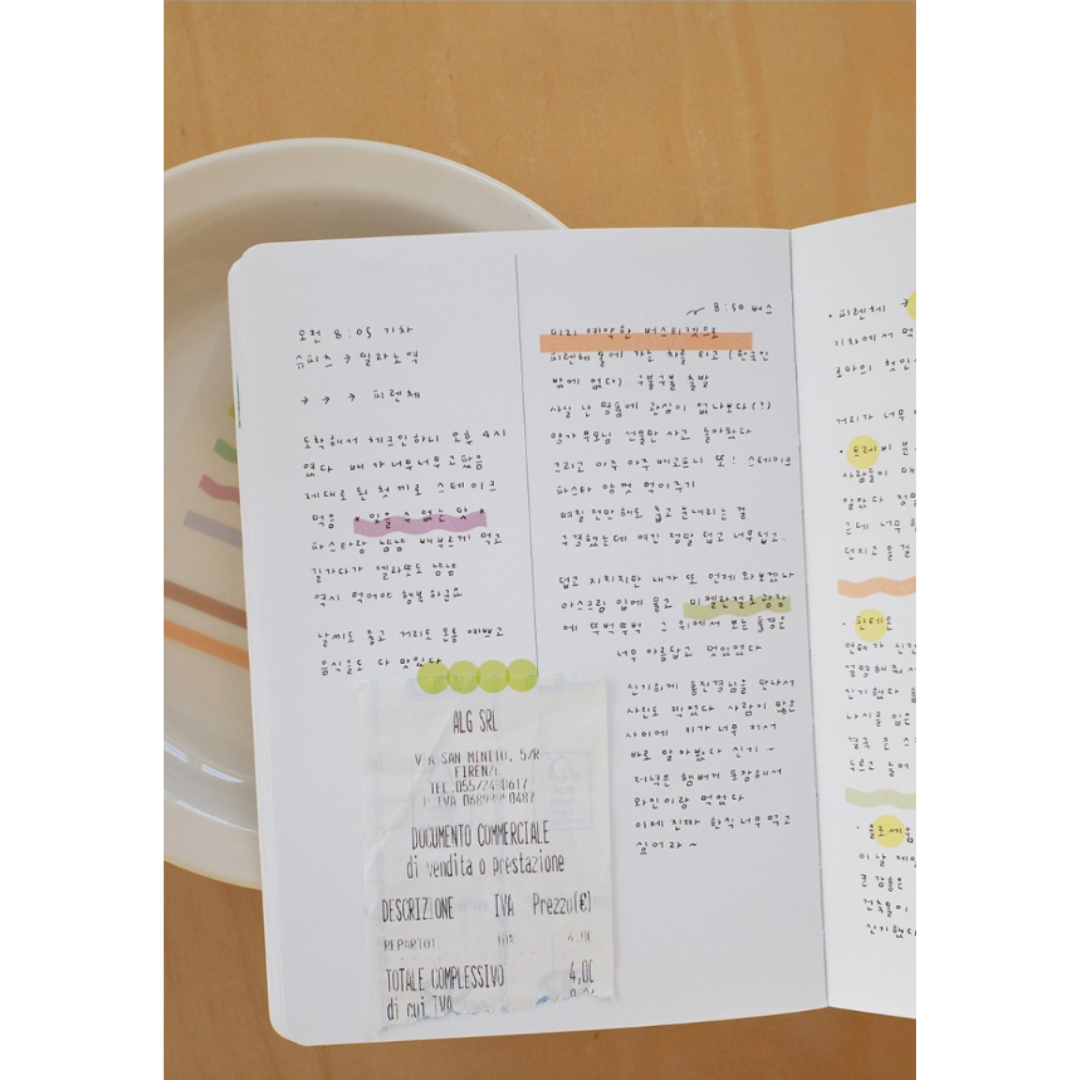 오전 8:05 기차
슈피츠 → 밀라노역
→ → → 피렌체
도착해서 체크인하니 오후 4시
였다 배가 너무너무 고팠음
제대로 된 첫끼로 스테이크
먹음 * 잊을 수 없는 맛 *
파스타랑 냠냠 배부르게 먹고
길가다가 젤라또도 냠냠
역시 먹어야 행복하군요
날씨도 좋고 거리도 온통 예쁘고
음식들도 다 맛있다
ALG SRL
VIA SAN MINIATO, 5/R
FIRENZE
TEL.055/2480617
P.IVA
DOCUMENTO COMMERCIALE
di vendita o prestazione
DESCRIZIONE IVA Prezzo(€)
REPARTO1 10% 4,00
TOTALE COMPLESSIVO 4,00
di cui IVA
8:50 버스
미리 예약한 버스티켓으로
피렌체 몰에 가는 차를 타고 (한국인
밖에 없다) 구불구불 출발
사실 난 명품에 관심이 없나보다(?)
양가 부모님 선물만 사고 돌아왔다
그리고 아주 아주 배고프니 또! 스테이크
파스타 양껏 먹어주기
며칠 전만해도 춥고 눈내리는 걸
구경했는데 여긴 정말 덥고 너무덥고.
덥고 지치지만 내가 또 언제 와보겠나
아스크림 입에 물고 미켈란젤로광장
에 뚜벅뚜벅 그 위에서 보는 풍경은
너무 아름답고 멋있었다
신기하게 홍진경님을 만나서
사진도 찍었다 사람이 많은
사이에 키가 너무 커서
바로 알아봤다 신기~
저녁은 햄버거 포장해서
와인이랑 먹었다
이제 진짜 한식 너무 먹고
싶어라~
· 피렌체 →
기차에서 먹
로마의 첫인
거리가 너무
· 트레비 분
사람들이
알았다 정말
근데 너무
던지고 올걸
· 판테온
설명해줘서
신기했다
나시를 입은
결국 큰 스
두르고 들어
· 콜로세움
이날 제일
큰 감흥은
건축물이
신기했다